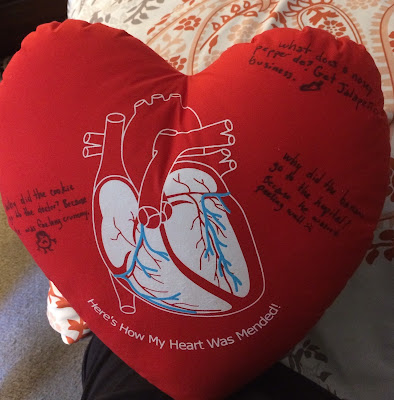 What does a nosey
pepper do? Get Jalapeño
business.
Why did the banana
go to the hospital?
Because he wasn't
peeling well
Why did the cookie
to the doctor? Because
was feeling crummy.
Here's How My Heart Was Mended!